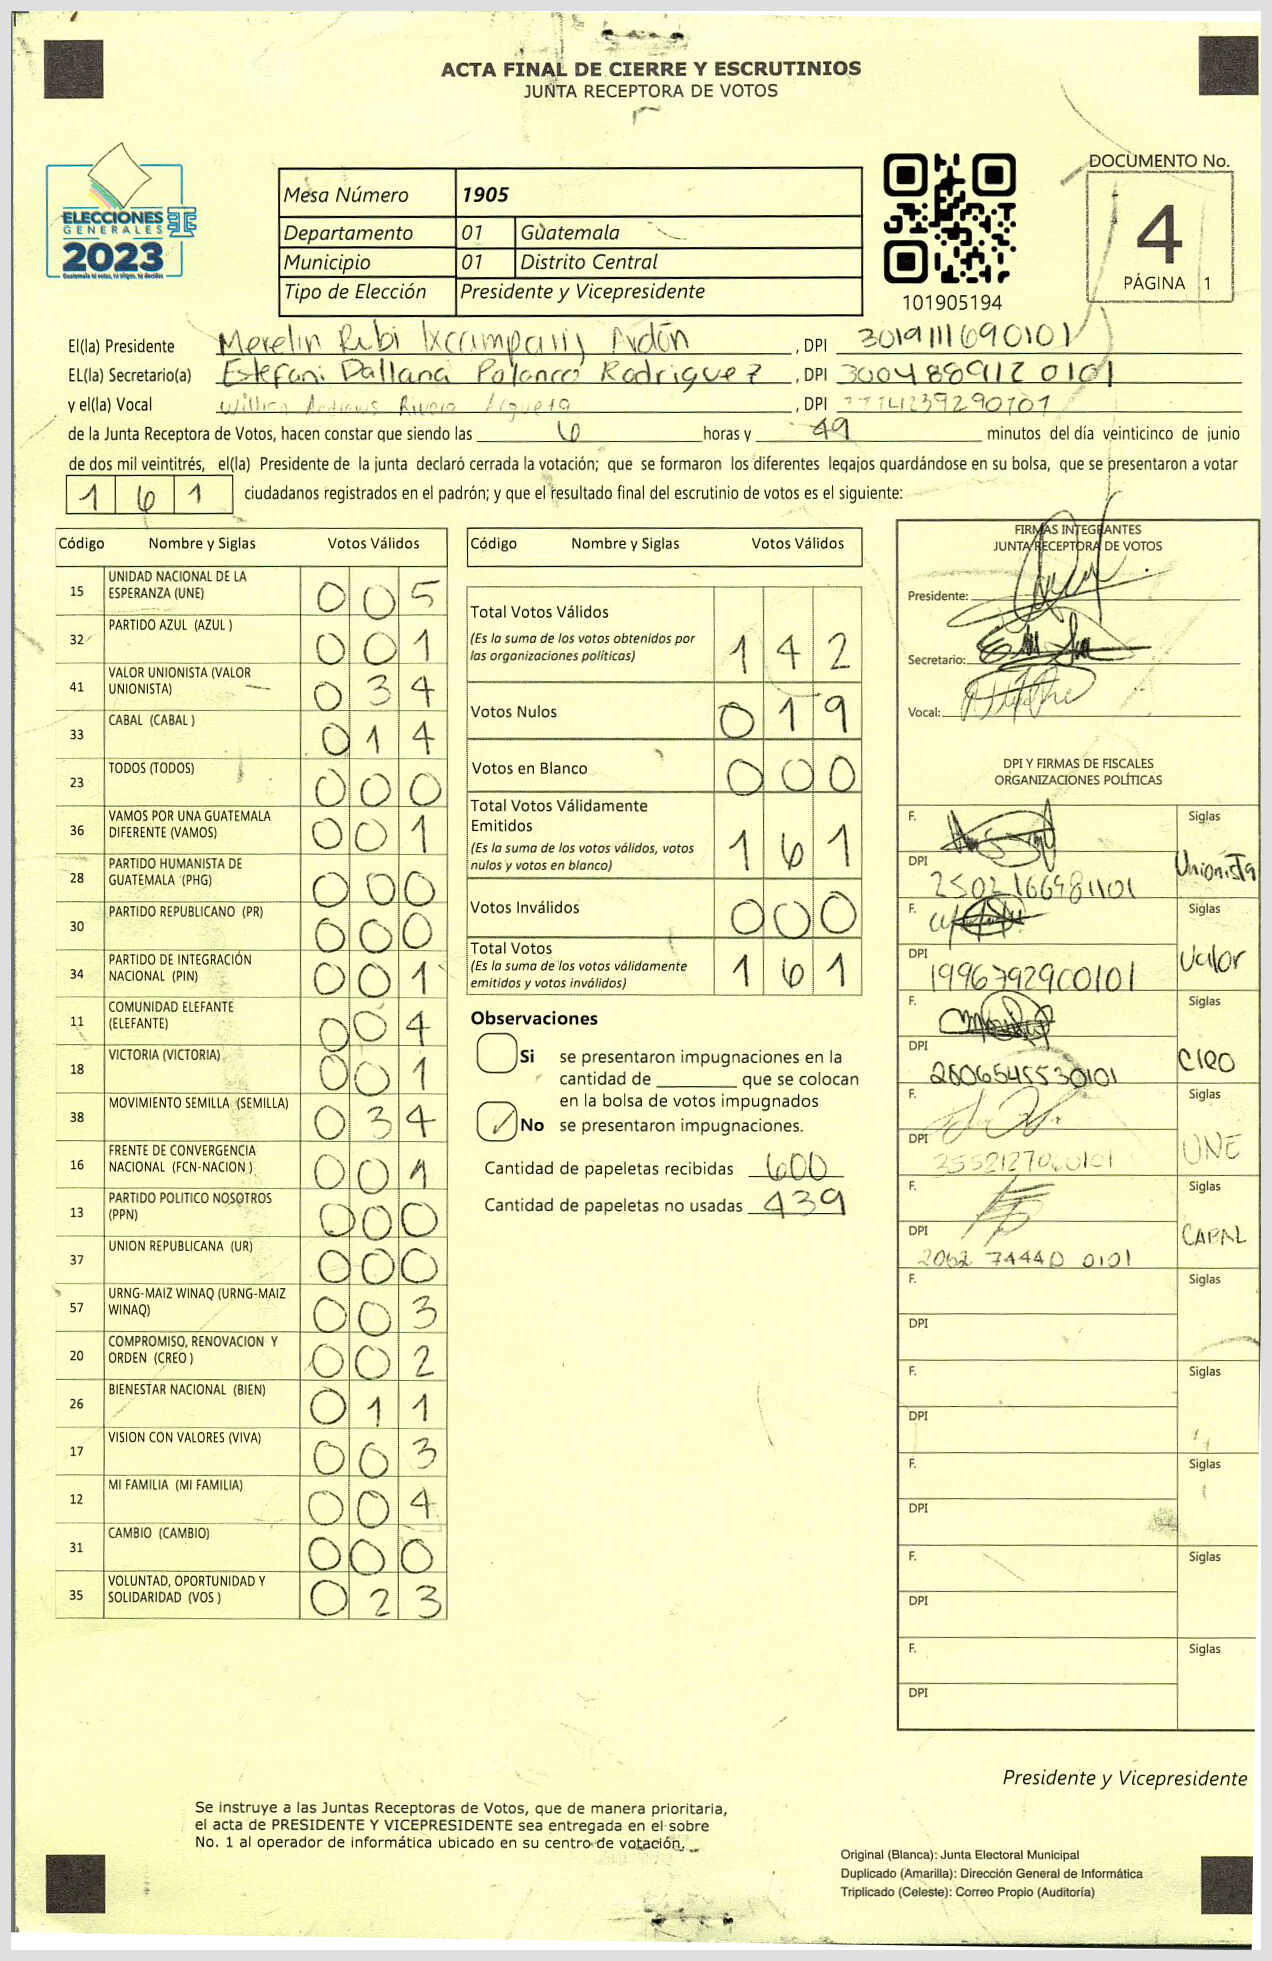 ACTA FINAL DE CIERRE Y ESCRUTINIOS
JUNTA RECEPTORA DE VOTOS
ELECCIONES
GENERALES
2023
Guatemala tú votas, tú eliges, tú decides
Mesa Número 1905
Departamento 01 Guatemala
Municipio 01 Distrito Central
Tipo de Elección Presidente y Vicepresidente
101905194
DOCUMENTO No.
4
PÁGINA 1
El(la) Presidente Merelin Rubi Ardón, DPI 3019111690101
EL(la) Secretario(a) Estefani Dallana Polanco Rodriguez, DPI 3004889120101
y el(la) Vocal Andrews Rivera Argueta, DPI
de la Junta Receptora de Votos, hacen constar que siendo las 6 horas y 49 minutos del día veinticinco de junio
de dos mil veintitrés, el(la) Presidente de la junta declaró cerrada la votación; que se formaron los diferentes legajos guardándose en su bolsa, que se presentaron a votar
161 ciudadanos registrados en el padrón; y que el resultado final del escrutinio de votos es el siguiente:
Código Nombre y Siglas Votos Válidos
15 UNIDAD NACIONAL DE LA ESPERANZA (UNE) 005
32 PARTIDO AZUL (AZUL ) 001
41 VALOR UNIONISTA (VALOR UNIONISTA) 034
33 CABAL (CABAL ) 014
23 TODOS (TODOS) 000
36 VAMOS POR UNA GUATEMALA DIFERENTE (VAMOS) 001
28 PARTIDO HUMANISTA DE GUATEMALA (PHG) 000
30 PARTIDO REPUBLICANO (PR) 000
34 PARTIDO DE INTEGRACIÓN NACIONAL (PIN) 001
11 COMUNIDAD ELEFANTE (ELEFANTE) 004
18 VICTORIA (VICTORIA) 001
38 MOVIMIENTO SEMILLA (SEMILLA) 034
16 FRENTE DE CONVERGENCIA NACIONAL (FCN-NACION ) 001
13 PARTIDO POLITICO NOSOTROS (PPN) 000
37 UNION REPUBLICANA (UR) 000
57 URNG-MAIZ WINAQ (URNG-MAIZ WINAQ) 003
20 COMPROMISO, RENOVACION Y ORDEN (CREO ) 002
26 BIENESTAR NACIONAL (BIEN) 011
17 VISION CON VALORES (VIVA) 003
12 MI FAMILIA (MI FAMILIA) 004
31 CAMBIO (CAMBIO) 000
35 VOLUNTAD, OPORTUNIDAD Y SOLIDARIDAD (VOS ) 023
Código Nombre y Siglas Votos Válidos
Total Votos Válidos 142
(Es la suma de los votos obtenidos por
las organizaciones políticas)
Votos Nulos 019
Votos en Blanco 000
Total Votos Válidamente
Emitidos 161
(Es la suma de los votos válidos, votos
nulos y votos en blanco)
Votos Inválidos 000
Total Votos 161
(Es la suma de los votos válidamente
emitidos y votos inválidos)
Observaciones
Si se presentaron impugnaciones en la
cantidad de ________ que se colocan
en la bolsa de votos impugnados
No se presentaron impugnaciones.
Cantidad de papeletas recibidas 600
Cantidad de papeletas no usadas 439
FIRMAS INTEGRANTES
JUNTA RECEPTORA DE VOTOS
Presidente:
Secretario:
Vocal:
DPI Y FIRMAS DE FISCALES
ORGANIZACIONES POLÍTICAS
F. Siglas
DPI 2502166981101 Unionista
F. Siglas
DPI 1996792900101 Valor
F. Siglas
DPI 2806545530101 CREO
F. Siglas
DPI UNE
F. Siglas
DPI 2062 74440 0101 CAPAL
F. Siglas
DPI
F. Siglas
DPI
F. Siglas
DPI
F. Siglas
DPI
F. Siglas
DPI
Presidente y Vicepresidente
Se instruye a las Juntas Receptoras de Votos, que de manera prioritaria,
el acta de PRESIDENTE Y VICEPRESIDENTE sea entregada en el sobre
No. 1 al operador de informática ubicado en su centro de votación.
Original (Blanca): Junta Electoral Municipal
Duplicado (Amarilla): Dirección General de Informática
Triplicado (Celeste): Correo Propio (Auditoría)